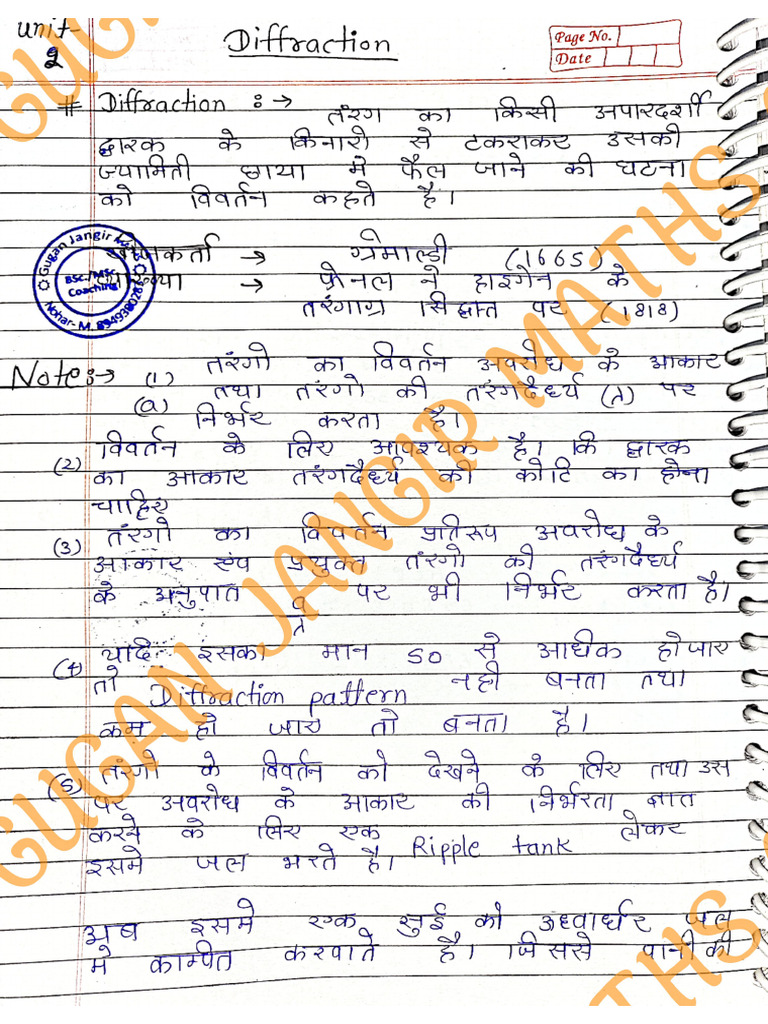 Unit-
2
Diffraction
Page No.
Date
# Diffraction :→ तरंग का किसी अपारदर्शी
द्वारक के किनारो से टकराकर उसकी
ज्यामिती छाया मे फैल जाने की घटना
को विवर्तन कहते है।
→ ग्रेमाल्डी (1665)
→ फ्रेनल ने हाइगेन के
तरंगाग्र सिद्धान्त पर (1818)
Gugan Jangir
BSc./MSc
Coaching
Note:→ (1) तरंगो का विवर्तन अवरोध के आकार
(a) तथा तरंगो की तरंगदैर्ध्य (λ) पर
निर्भर करता है।
(2) विवर्तन के लिए आवश्यक है। कि द्वारक
का आकार तरंगदैर्ध्य की कोटि का होना
चाहिए
(3) तरंगो का विवर्तन प्रतिरूप अवरोध के
आकार एंव प्रयुक्त तरंगो की तरंगदैर्ध्य
के अनुपात a/λ पर भी निर्भर करता है।
(4) यदि इसका मान 50 से अधिक हो जाए
तो Diffraction pattern नही बनता तथा
कम हो जाए तो बनता है।
(5) तरंगो के विवर्तन को देखने के लिए तथा उस
पर अवरोध के आकार की निर्भरता ज्ञात
करने के लिए एक Ripple tank लेकर
इसमे जल भरते है।
अब इसमे एक सुई को ऊध्वार्धर जल
मे कम्पित करवाते है। जिससे पानी की
GUGAN JANGIR MATHS